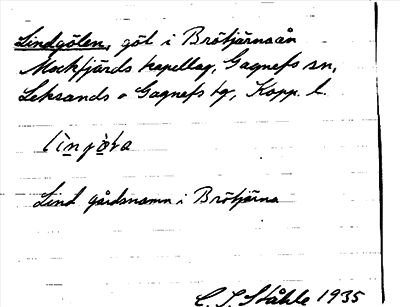 Lindgölen, göl i Brötjärnaån
Mockfjärds kapellag, Gagnefs sn,
Leksands o Gagnefs tg, Kopp. l.
Lind gårdsnamn i Brötjärna
C. I. Ståhle 1935